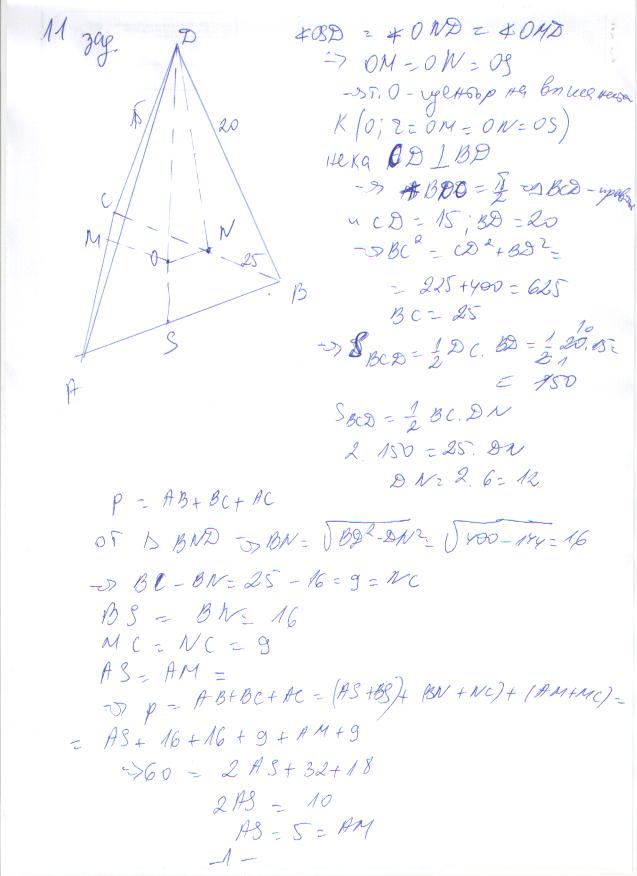 11 зад.
D
15
20
C
M
O
N
25
B
S
A
∢OSD = ∢OND = ∢OMD
⇒ OM = ON = OS
⇒ т. O - център на вписаната
K(O; r = OM = ON = OS)
нека CD ⊥ BD
⇒ ∢BDC = π/2 ⇒ △BCD - правоъг
и CD = 15; BD = 20
⇒ BC² = CD² + BD² =
= 225 + 400 = 625
BC = 25
⇒ S BCD = 1/2 DC . BD = 1/2 . 20 . 15 =
10
1
= 150
S BCD = 1/2 BC . DN
2 . 150 = 25 . DN
DN = 2 . 6 = 12
P = AB + BC + AC
от △ BND ⇒ BN = √(BD² - DN²) = √(400 - 144) = 16
⇒ BC - BN = 25 - 16 = 9 = NC
BS = BN = 16
MC = NC = 9
AS = AM =
⇒ p = AB + BC + AC = (AS + BS) + (BN + NC) + (AM + MC) =
= AS + 16 + 16 + 9 + AM + 9
⇒ 60 = 2AS + 32 + 18
2AS = 10
AS = 5 = AM
- 1 -